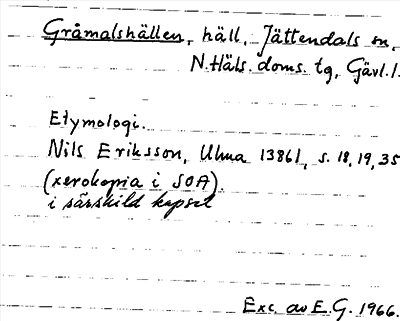 Gråmalshällen, häll, Jättendals sn,
N. Häls. doms. tg, Gävl. l.
Etymologi.
Nils Eriksson, Ulma 13861, s. 18, 19, 35
(xerokopia i SOA).
i särskild kapsel
Exc. av E.G. 1966.